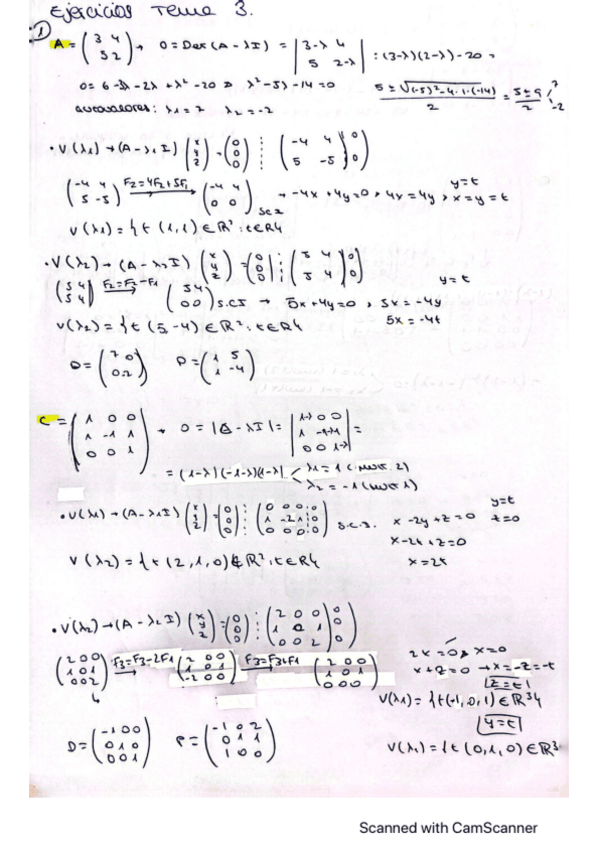 Ejercicios Tema 3.
① A = (3 4 / 5 2) → 0 = Det (A - λI) = |3-λ 4 / 5 2-λ| : (3-λ)(2-λ) - 20 =
0 = 6 - 3λ - 2λ + λ² - 20 ⇒ λ² - 5λ - 14 = 0 5 ± √(-5)² - 4·1·(-14) / 2 = 5 ± 9 / 2 7 -2
autovalores: λ1 = 7 λ2 = -2
• V(λ1) → (A - λ1 I) (x y z) = (0 0 0) ⋮ (-4 4 0 / 5 -5 0)
(-4 4 / 5 -5) F2=4F2+5F1 → (-4 4 / 0 0) → -4x + 4y = 0, 4x = 4y, x = y = t y = t
V(λ1) = { t (1,1) ∈ ℝ² : t ∈ ℝ }
• V(λ2) → (A - λ2 I) (x y z) = (0 0 0) ⋮ (5 4 0 / 5 4 0) y = t
(5 4 / 5 4) F2=F2-F1 → (5 4 / 0 0) S.C.I → 5x + 4y = 0, 5x = -4y
5x = -4t
V(λ2) = { t (5, -4) ∈ ℝ² : t ∈ ℝ }
D = (7 0 / 0 -2) P = (1 5 / 1 -4)
C = (1 0 0 / 1 -1 1 / 0 0 1) → 0 = |A - λI| = |1-λ 0 0 / 1 -1-λ 1 / 0 0 1-λ| =
= (1-λ)(-1-λ)(1-λ) < λ1 = 1 (mult. 2)
λ2 = -1 (mult 1)
• V(λ1) → (A - λ1 I) (x y z) = (0 0 0) ⋮ (0 0 0 0 / 1 -2 1 0 / 0 0 0 0) S.C.I. x - 2y + z = 0 y = t z = 0
x - 2t + z = 0
V(λ2) = { t (2, 1, 0) ∈ ℝ² : t ∈ ℝ } x = 2t
• V(λ2) → (A - λ2 I) (x y z) = (0 0 0) ⋮ (2 0 0 0 / 1 0 1 0 / 0 0 2 0)
(2 0 0 / 1 0 1 / 0 0 2) F3=F3-2F1 → (2 0 0 / 1 0 1 / -2 0 0) F3=F3+F1 → (2 0 0 / 1 0 1 / 0 0 0) 2x = 0, x = 0
x + z = 0 → x = -z = -t
z = t
V(λ1) = { t (-1, 0, 1) ∈ ℝ³ }
y = t
D = (-1 0 0 / 0 1 0 / 0 0 1) P = (-1 0 2 / 0 1 1 / 1 0 0) V(λ1) = { t (0, 1, 0) ∈ ℝ³
Scanned with CamScanner